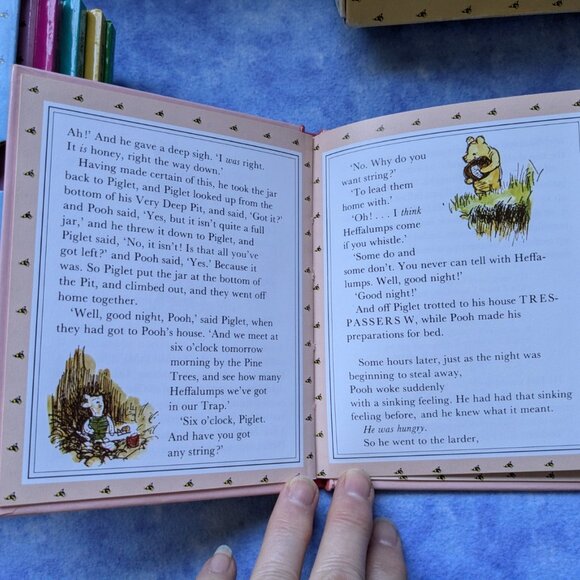 Ah!' And he gave a deep sigh. 'I was right.
It is honey, right the way down.'
Having made certain of this, he took the jar
back to Piglet, and Piglet looked up from the
bottom of his Very Deep Pit, and said, 'Got it?'
and Pooh said, 'Yes, but it isn't quite a full
jar,' and he threw it down to Piglet, and
Piglet said, 'No, it isn't! Is that all you've
got left?' and Pooh said, 'Yes.' Because it
was. So Piglet put the jar at the bottom of
the Pit, and climbed out, and they went off
home together.
'Well, good night, Pooh,' said Piglet, when
they had got to Pooh's house. 'And we meet at
six o'clock tomorrow
morning by the Pine
Trees, and see how many
Heffalumps we've got
in our Trap.'
'Six o'clock, Piglet.
And have you got
any string?'
'No. Why do you
want string?'
'To lead them
home with.'
'Oh! . . . I think
Heffalumps come
if you whistle.'
'Some do and
some don't. You never can tell with Heffa-
lumps. Well, good night!'
'Good night!'
And off Piglet trotted to his house TRES-
PASSERS W, while Pooh made his
preparations for bed.
Some hours later, just as the night was
beginning to steal away,
Pooh woke suddenly
with a sinking feeling. He had had that sinking
feeling before, and he knew what it meant.
He was hungry.
So he went to the larder,